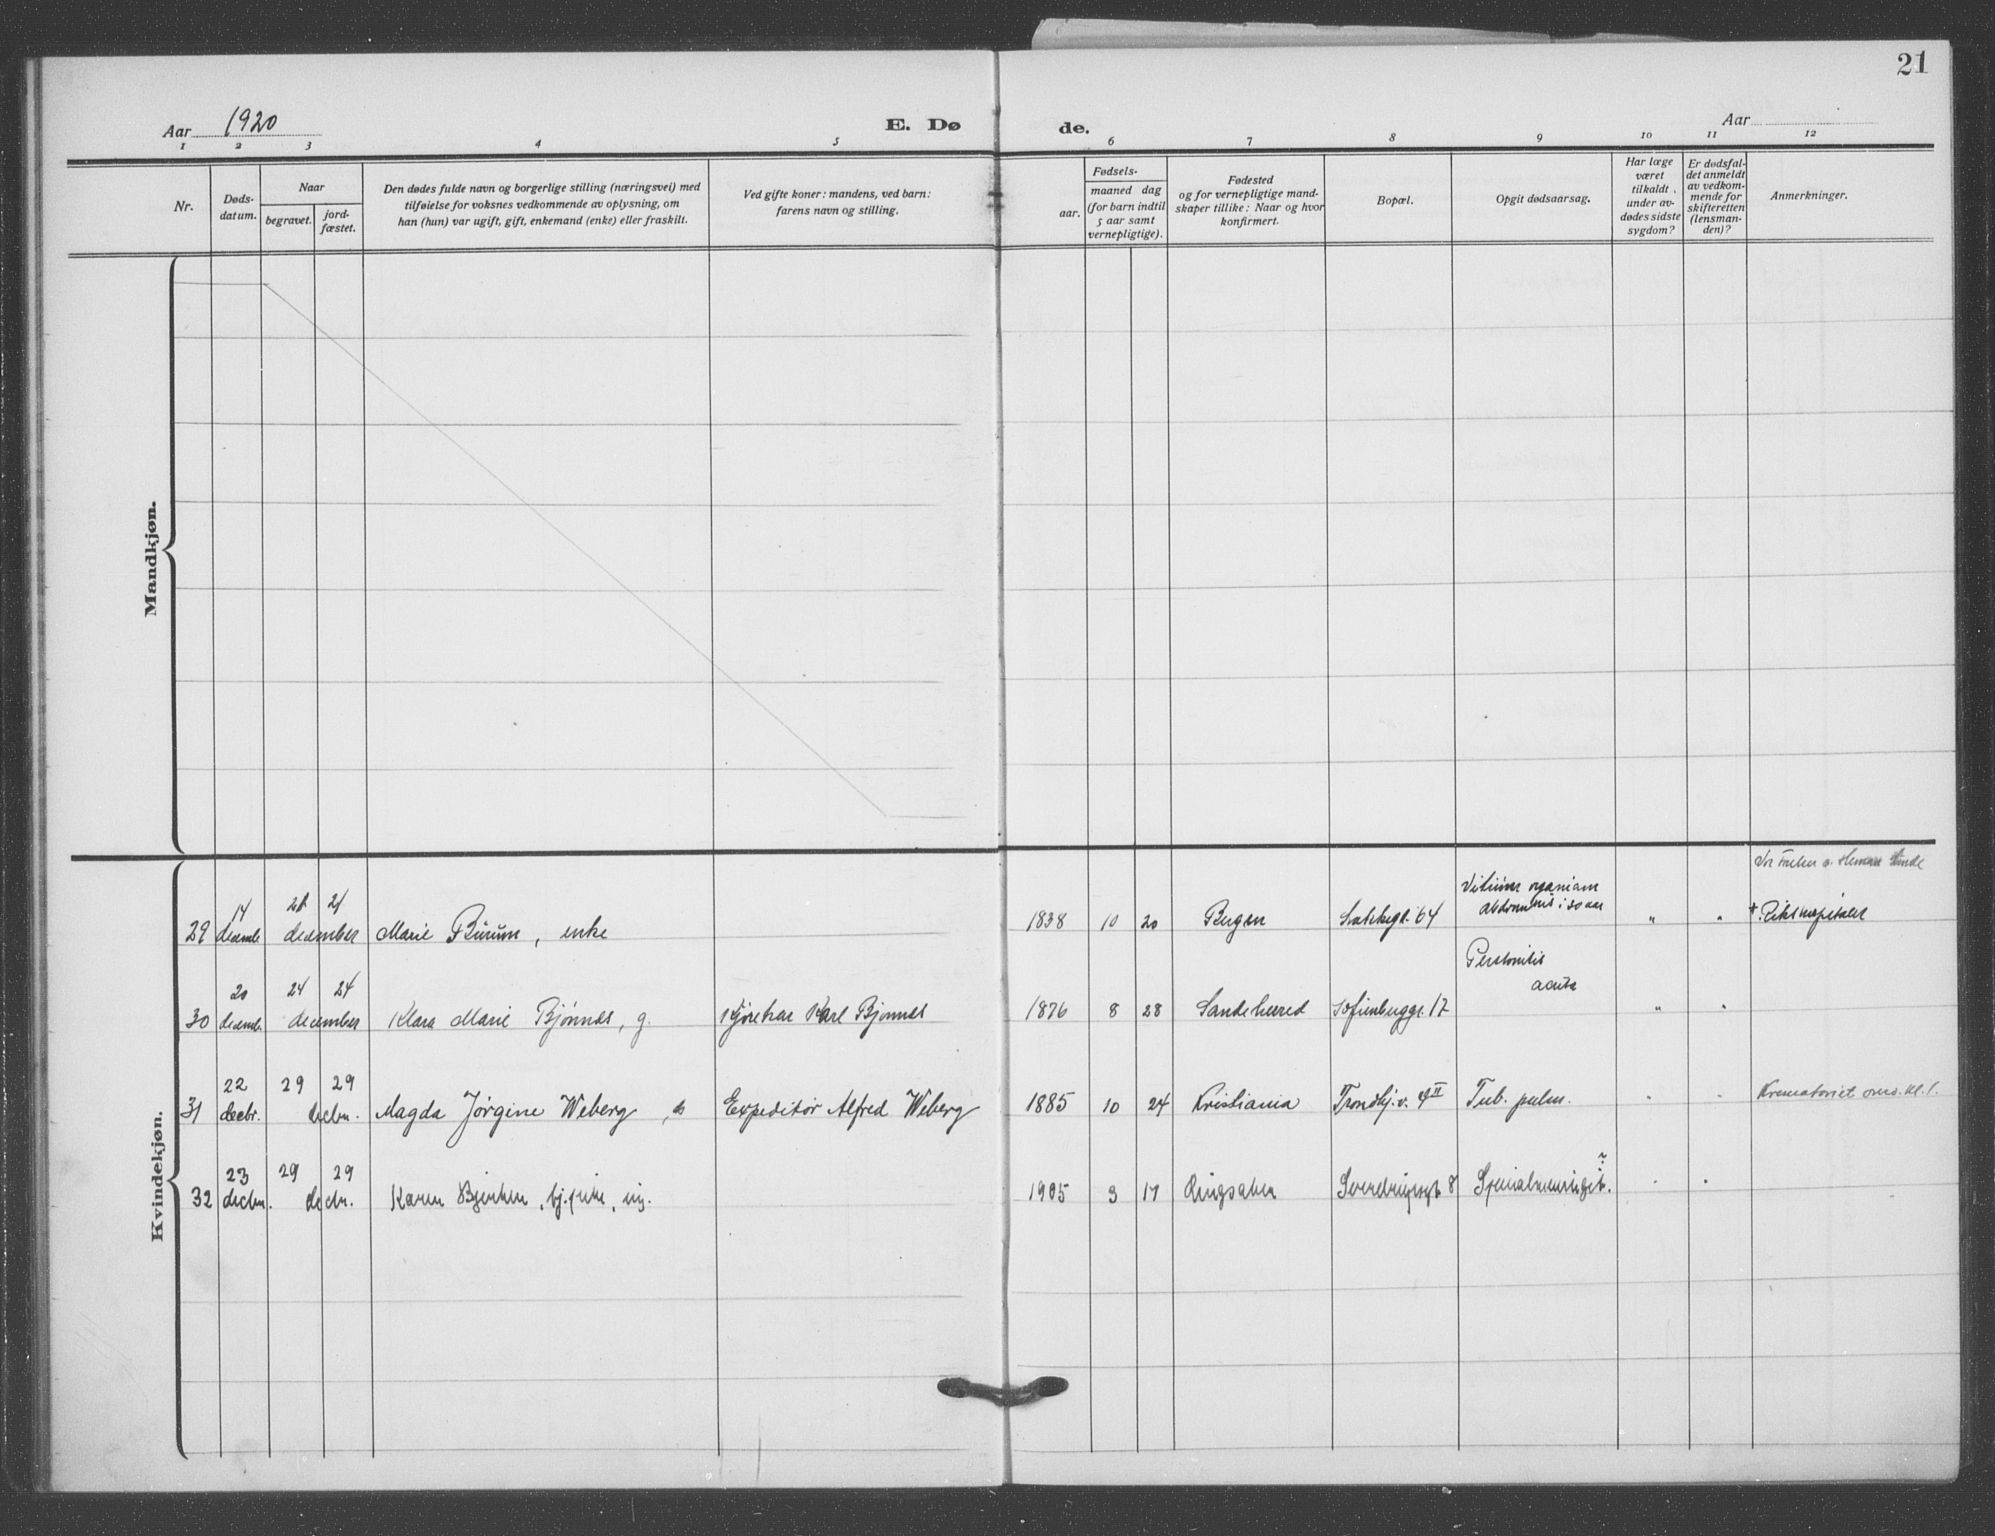 21
Aar 1920
E. Dø de.
Aar
1 2 3 4 5 6 7 8 9 10 11 12
Nr.
Døds-
datum.
Naar
begravet.
jord-
fæstet.
Den dødes fulde navn og borgerlige stilling (næringsvei) med
tilføielse for voksnes vedkommende av oplysning, om
han (hun) var ugift, gift, enkemand (enke) eller fraskilt.
Ved gifte koner: mandens, ved barn:
farens navn og stilling.
aar.
Fødsels-
maaned dag
(for barn indtil
5 aar samt
vernepligtige).
Fødested
og for vernepligtige mand-
skaper tillike: Naar og hvor
konfirmert.
Bopæl.
Opgit dødsaarsag.
Har læge
været
tilkaldt
under av-
dødes sidste
sygdom?
Er dødsfal-
det anmeldt
av vedkom-
mende for
skifteretten
(lensman-
den)?
Anmerkninger.
Mandkjøn.
Kvindekjøn.
14 21 21 Vitium organicum
29 decemb. december Marie Burum, enke 1838 10 20 Bergen 64 abdominis i 20 aar " " † Rikshospitalet
20 24 24 Peritonitis
acuta
30 decemb. december Klara Marie Bjønnes, g. Kjørekar Karl Bjønnes 1876 8 28 Sandeherred Sofienberggt. 17 " "
22 29 29
31 decbr. decbr. Magda Jørgine Weberg, Expeditør Alfred Weberg 1885 10 24 Kristiania Trondhj.v. II Tub. pulm. " " Krematoriet kl. 1.
23 29 29 ?
32 decbr. decbr. Karen ug. 1905 3 17 Ringsaker Sverdrupsgt. 8 " "